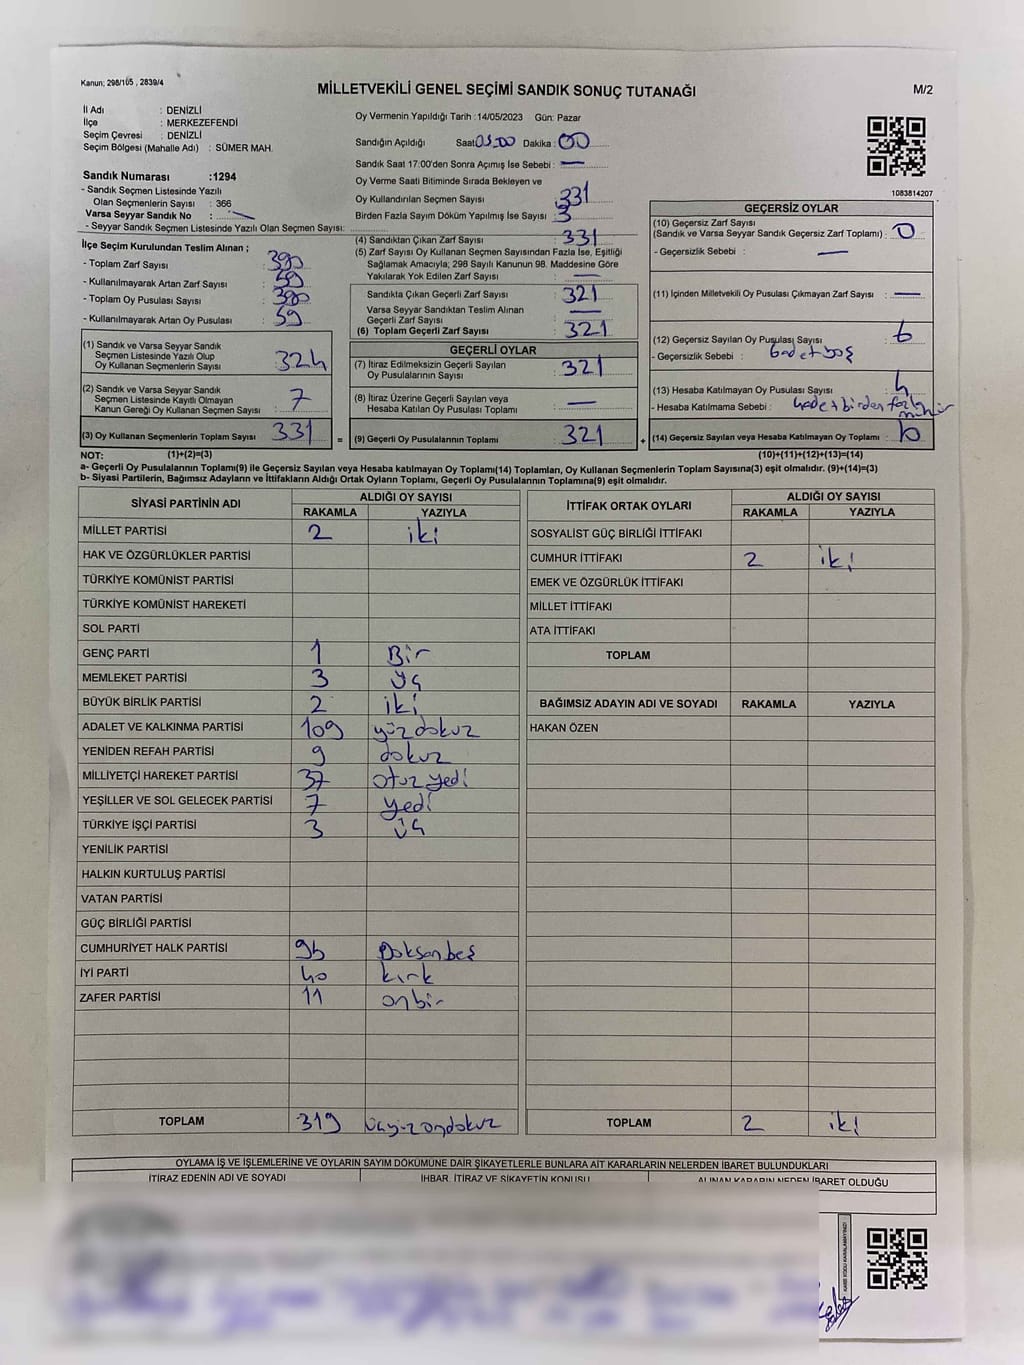 Kanun; 298/105 , 2839/4
MİLLETVEKİLİ GENEL SEÇİMİ SANDIK SONUÇ TUTANAĞI
M/2
İl Adı : DENİZLİ
İlçe : MERKEZEFENDİ
Seçim Çevresi : DENİZLİ
Seçim Bölgesi (Mahalle Adı) : SÜMER MAH.
Sandık Numarası :1294
- Sandık Seçmen Listesinde Yazılı
Olan Seçmenlerin Sayısı : 366
Varsa Seyyar Sandık No :
- Seyyar Sandık Seçmen Listesinde Yazılı Olan Seçmen Sayısı:
Oy Vermenin Yapıldığı Tarih : 14/05/2023 Gün: Pazar
Sandığın Açıldığı Saat Dakika : 00
Sandık Saat 17:00'den Sonra Açımış İse Sebebi : —
Oy Verme Saati Bitiminde Sırada Bekleyen ve
Oy Kullandırılan Seçmen Sayısı : 331
Birden Fazla Sayım Döküm Yapılmış İse Sayısı : 3
1083814207
İlçe Seçim Kurulundan Teslim Alınan ;
- Toplam Zarf Sayısı : 390
- Kullanılmayarak Artan Zarf Sayısı : 59
- Toplam Oy Pusulası Sayısı : 390
- Kullanılmayarak Artan Oy Pusulası : 59
(1) Sandık ve Varsa Seyyar Sandık
Seçmen Listesinde Yazılı Olup
Oy Kullanan Seçmenlerin Sayısı : 324
(2) Sandık ve Varsa Seyyar Sandık
Seçmen Listesinde Kayıtlı Olmayan
Kanun Gereği Oy Kullanan Seçmen Sayısı : 7
(3) Oy Kullanan Seçmenlerin Toplam Sayısı : 331
(4) Sandıktan Çıkan Zarf Sayısı : 331
(5) Zarf Sayısı Oy Kullanan Seçmen Sayısından Fazla İse, Eşitliği
Sağlamak Amacıyla; 298 Sayılı Kanunun 98. Maddesine Göre
Yakılarak Yok Edilen Zarf Sayısı : —
Sandıkta Çıkan Geçerli Zarf Sayısı : 321
Varsa Seyyar Sandıktan Teslim Alınan
Geçerli Zarf Sayısı : —
(6) Toplam Geçerli Zarf Sayısı : 321
GEÇERLİ OYLAR
(7) İtiraz Edilmeksizin Geçerli Sayılan
Oy Pusulalarının Sayısı : 321
(8) İtiraz Üzerine Geçerli Sayılan veya
Hesaba Katılan Oy Pusulası Toplamı : —
= (9) Geçerli Oy Pusulalarının Toplamı : 321
GEÇERSİZ OYLAR
(10) Geçersiz Zarf Sayısı
(Sandık ve Varsa Seyyar Sandık Geçersiz Zarf Toplamı) : 0
- Geçersizlik Sebebi : —
(11) İçinden Milletvekili Oy Pusulası Çıkmayan Zarf Sayısı : —
(12) Geçersiz Sayılan Oy Pusulası Sayısı : 6
- Geçersizlik Sebebi : 6 adet boş
(13) Hesaba Katılmayan Oy Pusulası Sayısı : 4
- Hesaba Katılmama Sebebi : 4 adet birden fazla mühür
+ (14) Geçersiz Sayılan veya Hesaba Katılmayan Oy Toplamı :
NOT: (1)+(2)=(3) (10)+(11)+(12)+(13)=(14)
a- Geçerli Oy Pusulasının Toplamı(9) ile Geçersiz Sayılan veya Hesaba katılmayan Oy Toplamı(14) Toplamları, Oy Kullanan Seçmenlerin Toplam Sayısına(3) eşit olmalıdır. (9)+(14)=(3)
b- Siyasi Partilerin, Bağımsız Adayların ve İttifakların Aldığı Ortak Oyların Toplamı, Geçerli Oy Pusulalarının Toplamına(9) eşit olmalıdır.
SİYASİ PARTİNİN ADI ALDIĞI OY SAYISI
RAKAMLA YAZIYLA
MİLLET PARTİSİ 2 iki
HAK VE ÖZGÜRLÜKLER PARTİSİ
TÜRKİYE KOMÜNİST PARTİSİ
TÜRKİYE KOMÜNİST HAREKETİ
SOL PARTİ
GENÇ PARTİ 1 Bir
MEMLEKET PARTİSİ 3 üç
BÜYÜK BİRLİK PARTİSİ 2 iki
ADALET VE KALKINMA PARTİSİ 109 yüzdokuz
YENİDEN REFAH PARTİSİ 9 dokuz
MİLLİYETÇİ HAREKET PARTİSİ 37 otuz yedi
YEŞİLLER VE SOL GELECEK PARTİSİ 7 yedi
TÜRKİYE İŞÇİ PARTİSİ 3 üç
YENİLİK PARTİSİ
HALKIN KURTULUŞ PARTİSİ
VATAN PARTİSİ
GÜÇ BİRLİĞİ PARTİSİ
CUMHURİYET HALK PARTİSİ 95 Doksanbeş
İYİ PARTİ 40 kırk
ZAFER PARTİSİ 11 onbir
TOPLAM 319 üçyüzondokuz
İTTİFAK ORTAK OYLARI ALDIĞI OY SAYISI
RAKAMLA YAZIYLA
SOSYALİST GÜÇ BİRLİĞİ İTTİFAKI
CUMHUR İTTİFAKI 2 iki
EMEK VE ÖZGÜRLÜK İTTİFAKI
MİLLET İTTİFAKI
ATA İTTİFAKI
TOPLAM
BAĞIMSIZ ADAYIN ADI VE SOYADI RAKAMLA YAZIYLA
HAKAN ÖZEN
TOPLAM 2 iki
OYLAMA İŞ VE İŞLEMLERİNE VE OYLARIN SAYIM DÖKÜMÜNE DAİR ŞİKAYETLERLE BUNLARA AİT KARARLARIN NELERDEN İBARET BULUNDUKLARI
İTİRAZ EDENİN ADI VE SOYADI İHBAR, İTİRAZ VE ŞİKAYETİN KONUSU ALINAN KARARIN NEDEN İBARET OLDUĞU